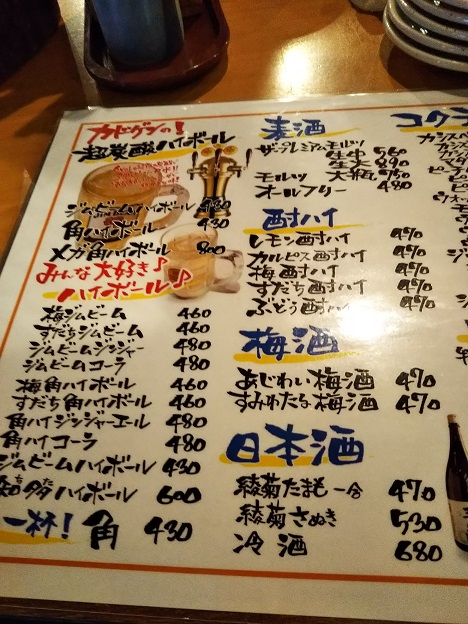 カドゲンの!
超炭酸ハイボール
ジムビームハイボール 430
角ハイボール 430
メガ角ハイボール 800
みんな大好き♪
ハイボール♪
梅ジムビーム 460
すだちジムビーム 460
ジムビームジンジャー 480
ジムビームコーラ 480
梅角ハイボール 460
すだち角ハイボール 460
角ハイジンジャーエール 480
角ハイコーラ 480
ジムビームハイボール 430
知多ハイボール 600
一杯! 角 430
麦酒
ザ・プレミアムモルツ
生中 560
生大 890
モルツ 大瓶 750
オールフリー 480
酎ハイ
レモン酎ハイ 470
カルピス酎ハイ 470
梅酎ハイ 470
すだち酎ハイ 470
ぶどう酎ハイ 470
梅酒
あじわい梅酒 470
すみわたる梅酒 470
日本酒
綾菊たまも 一合 470
綾菊さぬき 530
冷酒 680
コクテ